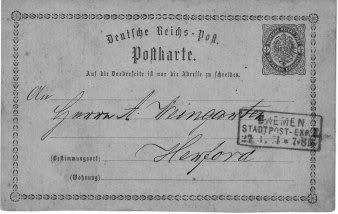 Deutsche Reichs-Post.
Postkarte.
Auf die Vorderseite ist nur die Adresse zu schreiben.
An
Herrn A. Weingarten
BREMEN
STADTPOST-EXP.
(Bestimmungsort)
Herford
(Wohnung)